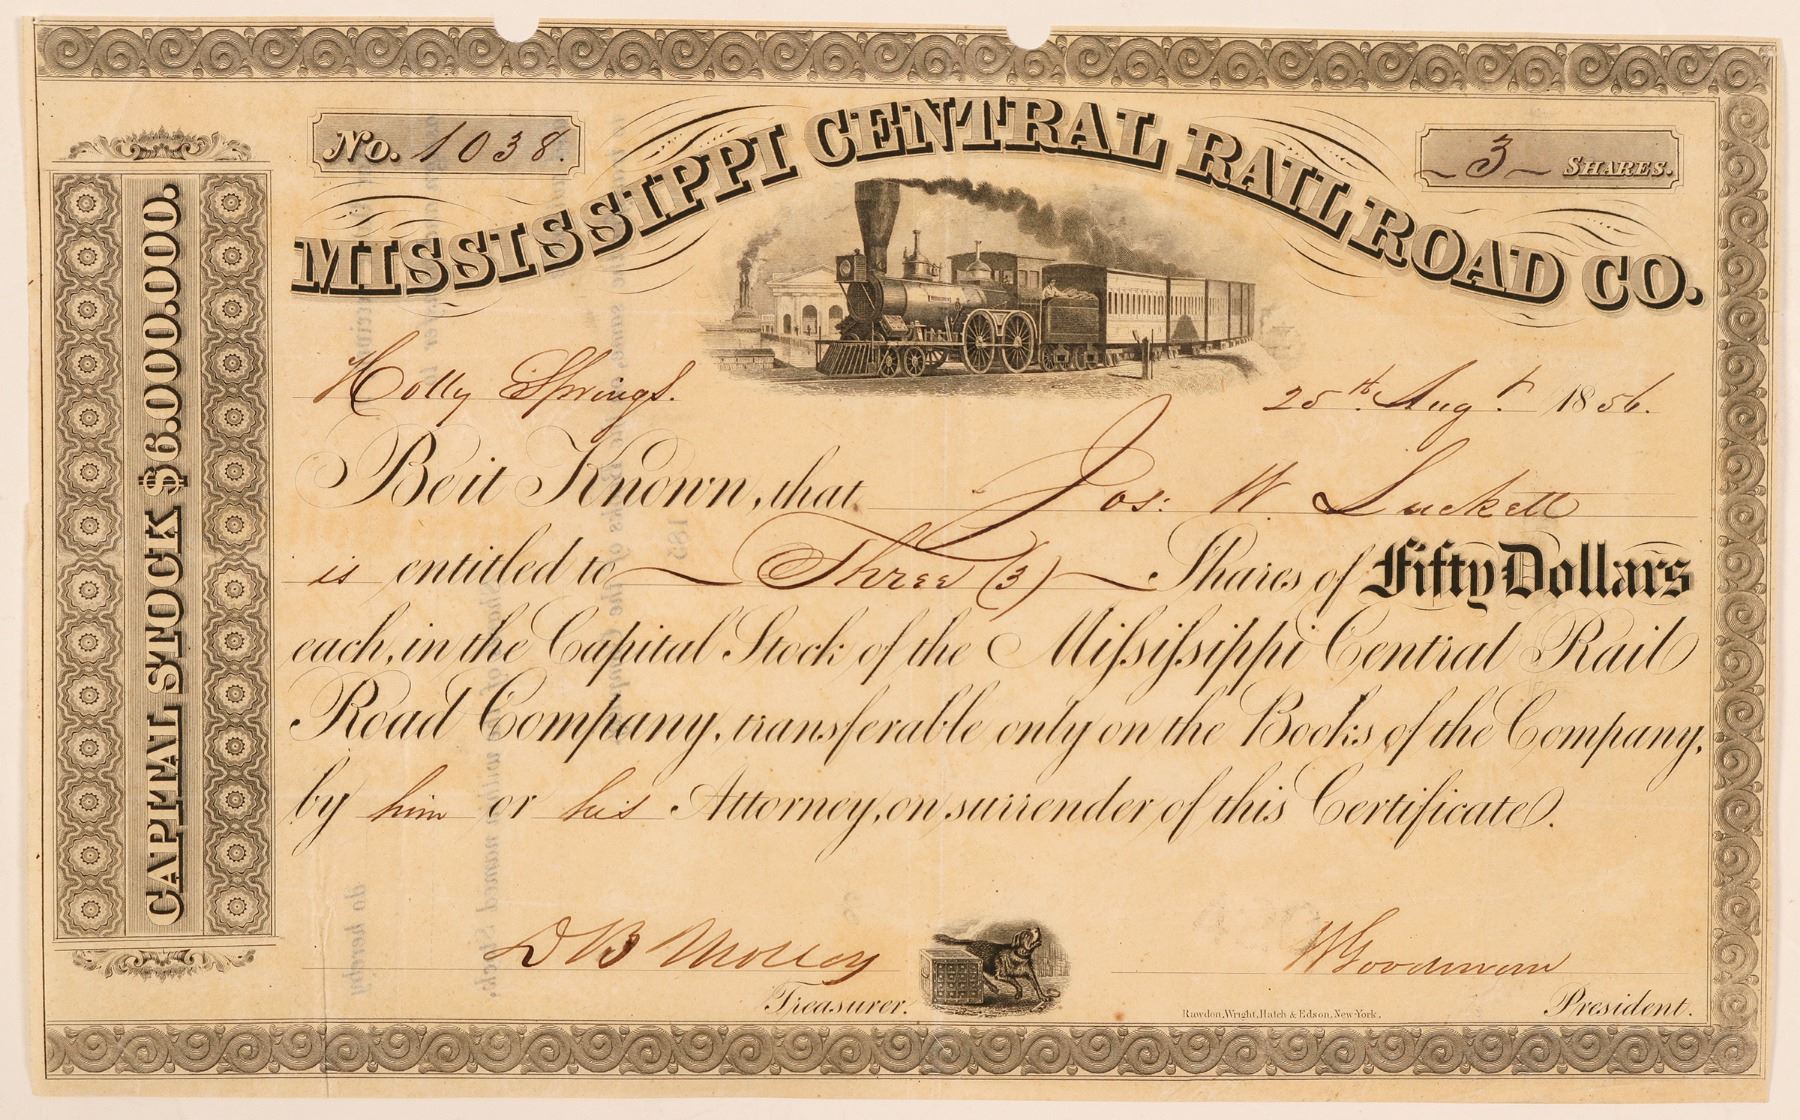 No. 1038.
MISSISSIPPI CENTRAL RAIL ROAD CO.
3 SHARES.
CAPITAL STOCK $6.000.000.
Holly Springs. 25th Augt. 1856.
Be it Known, that Jos: W. Luckett
is entitled to Three (3) Shares of Fifty Dollars
each, in the Capital Stock of the Mississippi Central Rail
Road Company, transferable only on the Books of the Company,
by him or his Attorney, on surrender of this Certificate.
D B Molloy
Treasurer.
W Goodman
President.
Rawdon, Wright, Hatch & Edson, New-York.